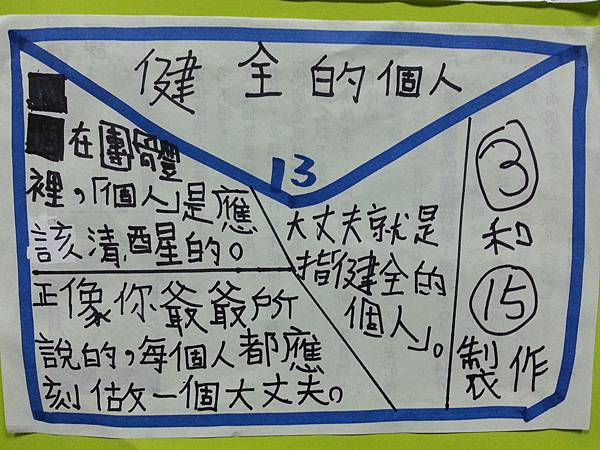 健全的個人
13
在團體
裡，「個人」是應
該清醒的。
正像你爺爺所
說的，每個人都應
刻做一個大丈夫。
大丈夫就是
指「健全的
個人」。
3
和
15
製作